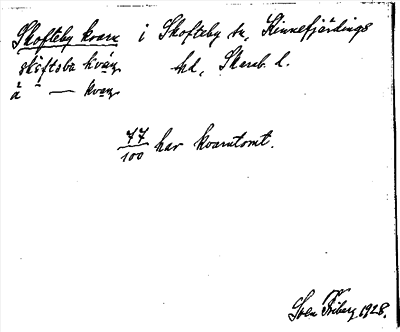 Skofteby kvarn i Skofteby sn, Kinnefjärdings
skòftəba kvàɳ hd, Skarab. l.
å - — kvaɳ
77/100 har kvarntomt.
Sven Friberg 1928.